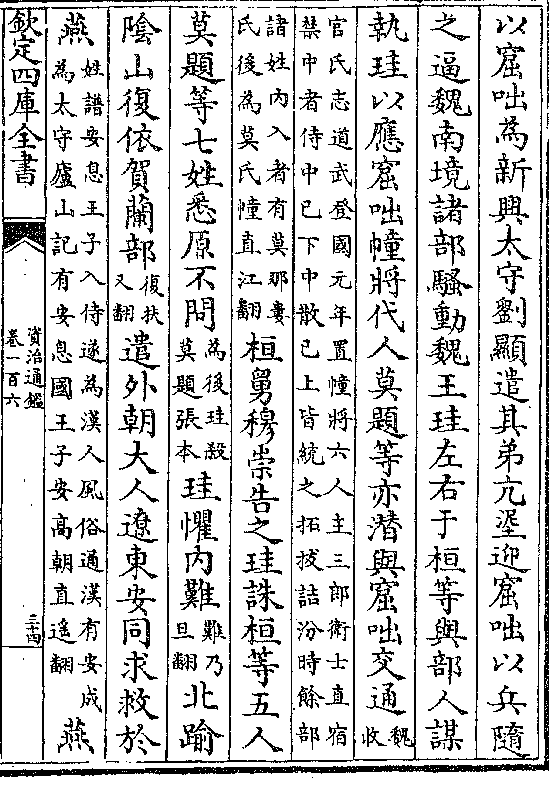 以窟咄為新興太守劉顯遣其弟亢埿迎窟咄以兵隨
之逼魏南境諸部騷動魏王珪左右于桓等與部人謀
執珪以應窟咄幢將代人莫題等亦潛與窟咄交通魏收
官氏志道武登國元年置幢將六人主三郎衛士直宿
禁中者侍中已下中散已上皆統之拓拔詰汾時餘部
諸姓內入者有莫那婁氏後為莫氏幢直江翻桓舅穆崇告之珪誅桓等五人
莫題等七姓悉原不問為後珪殺莫題張本珪懼內難難乃旦翻北踰
陰山復依賀蘭部復扶又翻遣外朝大人遼東安同求救於
燕姓譜安息王子入侍遂為漢人風俗通漢有安成為太守廬山記有安息國王子安高朝直遙翻燕
欽定四庫全書
資治通鑑
卷一百六
三十四